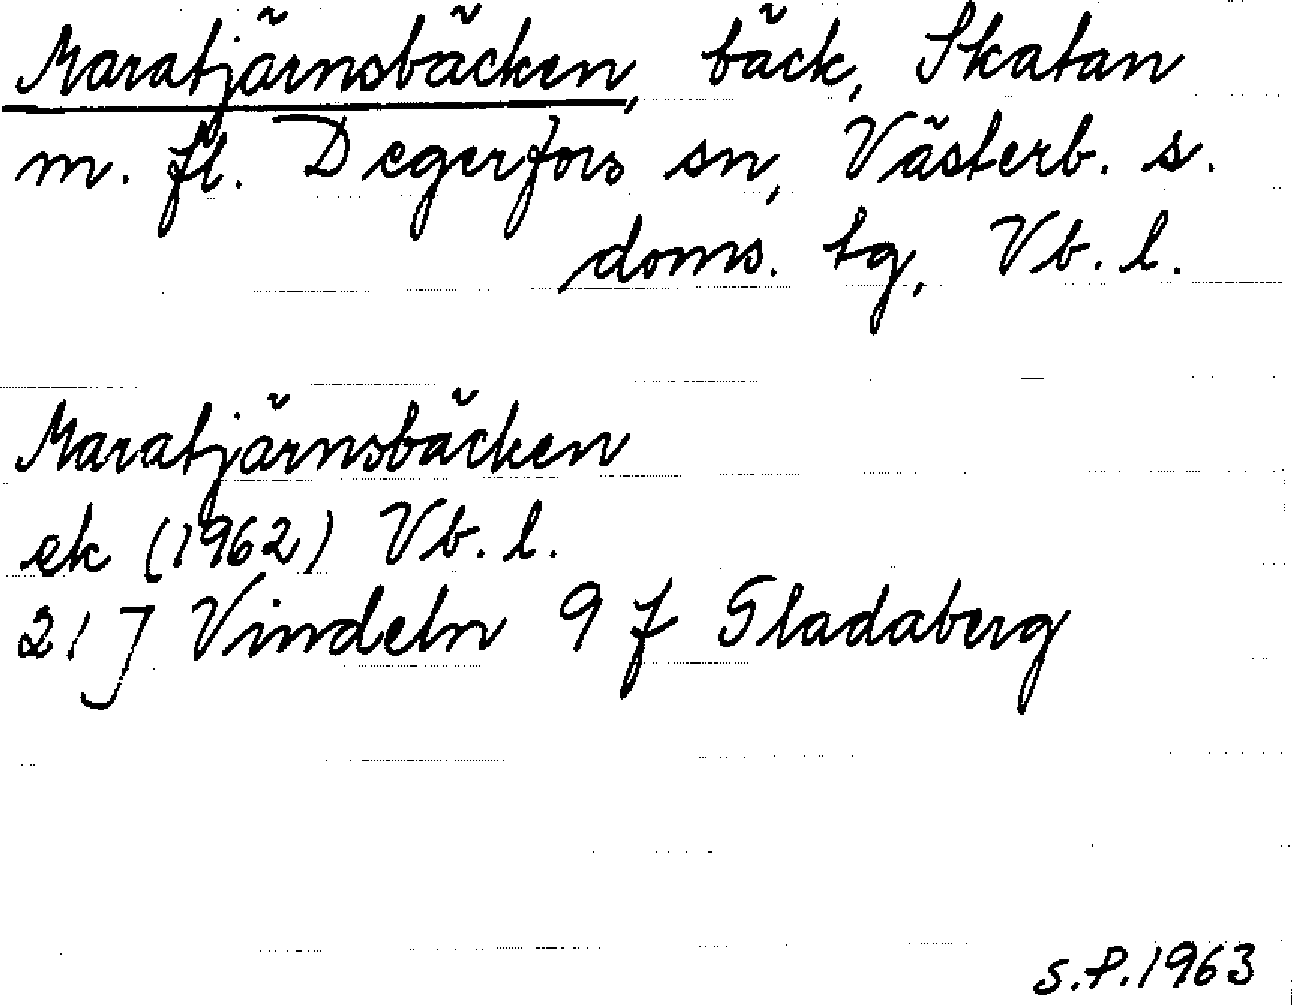 Maratjärnsbäcken, bäck, Skatan
m. fl. Degerfors sn, Västerb. s.
doms. tg, Vb. l.
Maratjärnsbäcken
ek (1962) Vb. l.
21 J Vindeln 9 f Gladaberg
S.P.1963